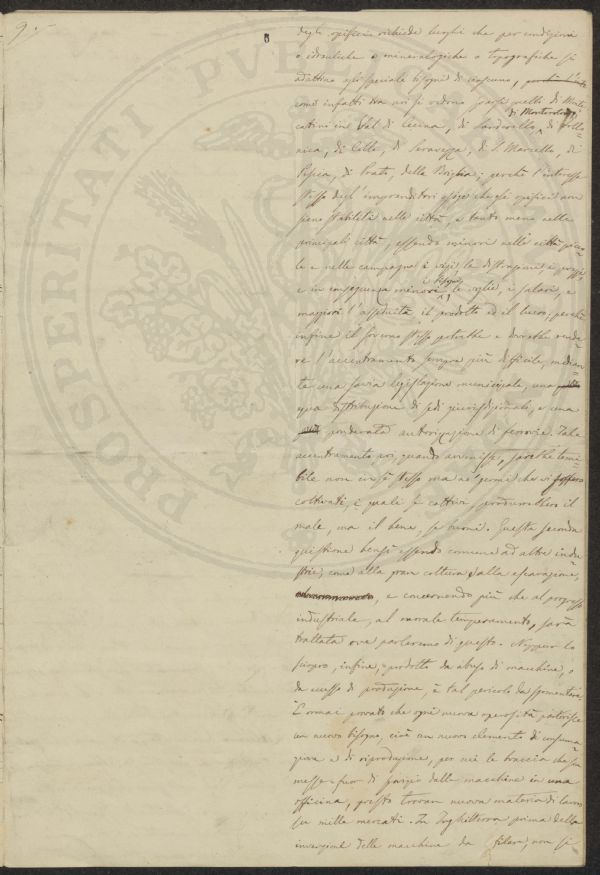 9.
8
degli opifici richiede luoghi che per condizioni
o idrauliche o mineralogiche o topografiche si
adattino agli speciali bisogni di ciascuno,
come infatti tra noi si vedono sparsi nelli di Monte
di Monterotondo,
catini in Val di Cecina, di Larderello, di Follo=
nica, di Colle, di Seravezza, di S. Marcello, di
Pescia, di Prato, della Briglia; perchè l'interesse
stesso degl'imprenditori esige che gli opifici non
sieno stabiliti nelle città, e tanto meno nelle
principali città, essendo minori nelle città picco=
le e nelle campagne i vizi, le distrazioni, i
i bisogni,
e in conseguenza minori le voglie, i salari, e
maggiori l'assiduità, il prodotto ed il lucro; perchè
infine il Governo stesso potrebbe e dovrebbe rende=
re l'accentramento sempre più difficile, median=
te una savia legislazione municipale, una
equa distribuzione di sedi giurisdizionali, e una
ponderata autorizzazione di ferrovie. Tale
accentramento poi, quando avvenisse, sarebbe temi=
bile non in se stesso ma ne' germi che vi fossero
coltivati, i quali se cattivi produrrebbero il
male, ma il bene, se buoni. Questa seconda
quistione bensì essendo comune ad altre indu=
strie, come alla gran coltura, alla escavazione,
e concernendo più che al progresso
industriale, al morale temperamento, sarà
trattata ove parleremo di questo. Neppur lo
sciopero, infine, prodotto da abuso di macchine, o
da eccesso di produzione, è tal pericolo da sgomentarci.
È ormai provato che ogni nuova operosità partorisce
un nuovo bisogno, cioè un nuovo elemento di consuma=
zione e di riproduzione, per cui le braccia che son
messe fuor di servizio dalle macchine in una
officina, presto trovan nuova materia di lavoro
su mille mercati. In Inghilterra prima della
invenzione delle macchine da filare, non si
PROSPERITATI PVBLI